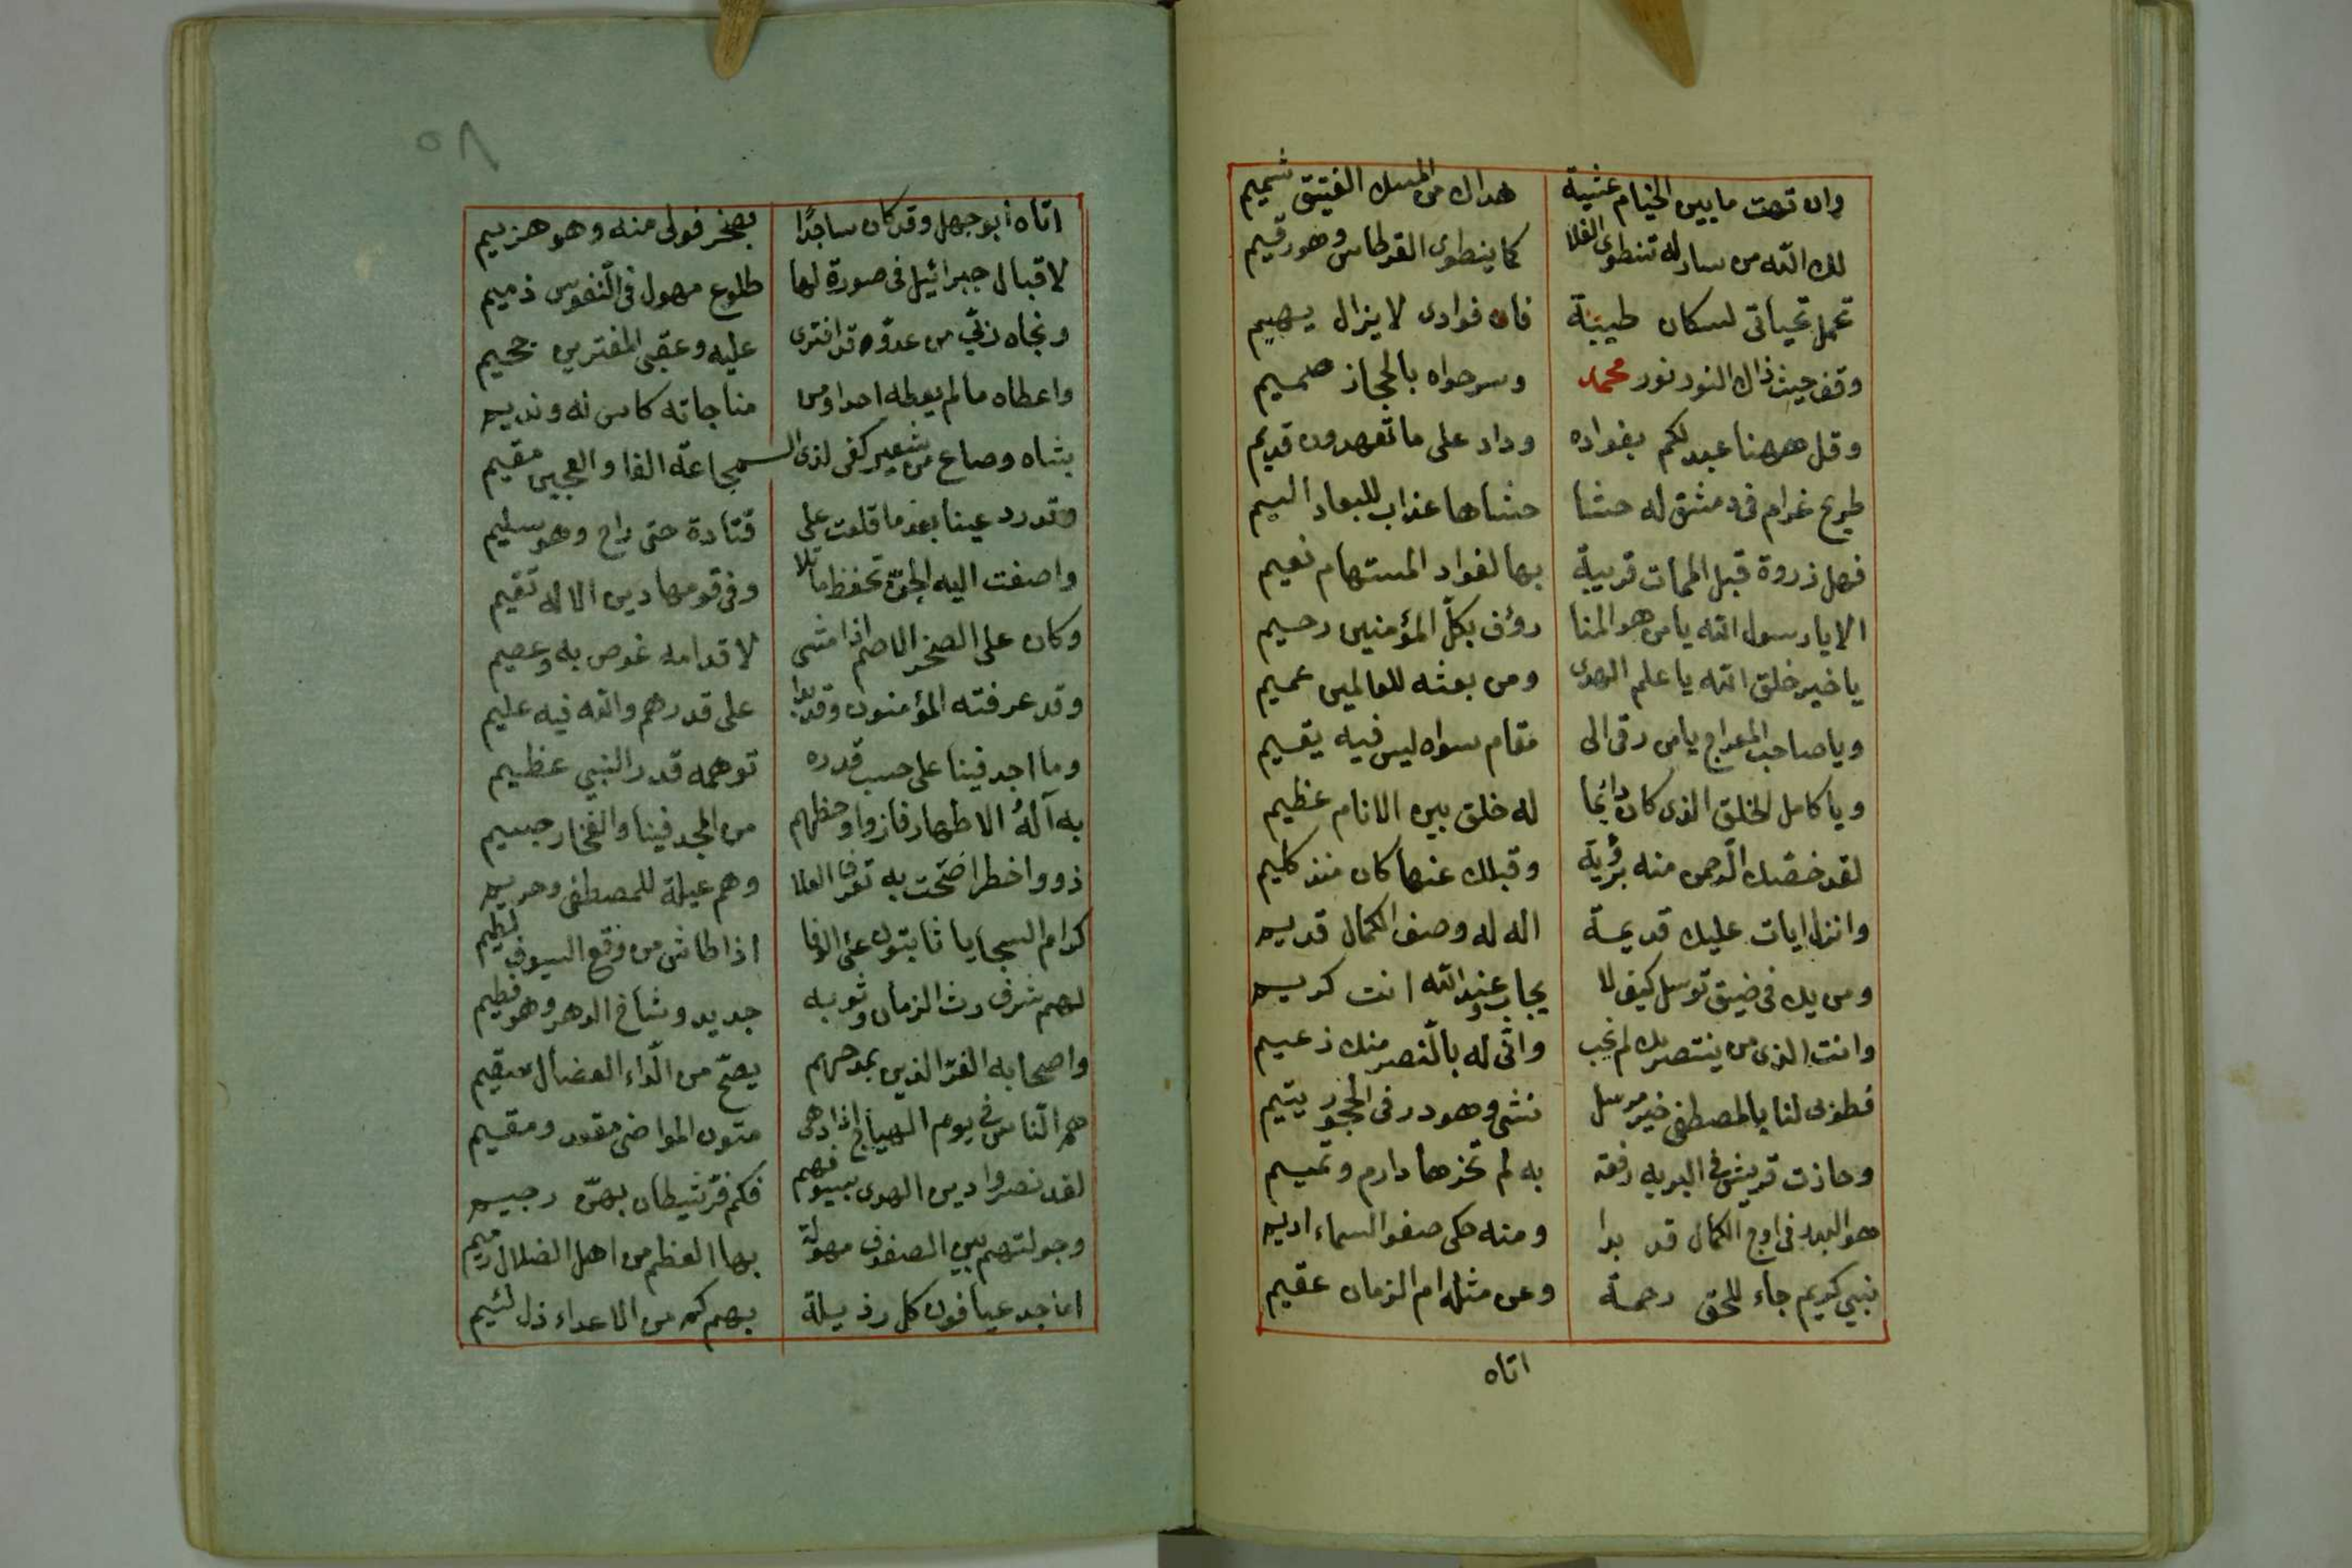 وان تهت مابين الخيام عشية هداك من المسك الفتيق شميم
لك الله من سار له تنطوى الفلا كما ينطوى القرطاس وهو رقيم
تحمل تحياتى لسكان طيبة فان فوادى لا يزال يهيم
وقف حيث ذاك النور نور محمد وسر حواه بالحجاز صميم
وقل ههنا عبد لكم بفواده وداد على ما تعهدون قديم
طريح غرام فى دمشق له حشا حشاها عذاب للبعاد اليم
فهل زروة قبل الممات قريبة بها لفواد المستهام نعيم
الا يا رسول الله يا من هو المنا رؤف بكل المؤمنين رحيم
يا خير خلق الله يا علم الهدى ومن بعثه للعالمين عميم
ويا صاحب المعراج يا من رقى الى مقام سواه ليس فيه يقيم
ويا كامل الخلق الذى كان دائما له خلق بين الانام عظيم
لقد خصك الرحمن منه برؤية وقبلك عنها كان منذ كليم
وانزل ايات عليك قديمة اله له وصف الكمال قديم
ومن يك فى ضيق توسل كيف لا يجاب وعند الله انت كريم
وانت الذى من ينتصر بك لم يخب وانى له بالنصر منك زعيم
فطوبى لنا بالمصطفى خير مرسل نشى وهو در فى الحجور يتيم
وحازت قريش فى البريه رفعة به لم تحزها دارم وتميم
هو البدر فى اوج الكمال قد بدا ومنه حكى صفو السماء اديم
نبي كريم جاء للحق رحمة وعن مثله ام الزمان عقيم
اتاه
٥٨
اتاه ابو جهل وقد كان ساجدًا بصخر فولى منه وهو هزيم
لاقبال جبرائيل فى صورة لها طلوع مهول فى النفوس ذميم
ونجاه ربي من عدوه قد افترى عليه وعقبى المفترين جحيم
واعطاه ما لم يعطه احدا ومن مناجاته كاس له ونديم
بشاه وصاع من شعير كفى لذى المجاعة الفا والعجين مقيم
وقد رد عينا بعد ما قلعت على قتادة حتى راح وهو سليم
واصغت اليه الجن تحفظ ما تلا وفى قومها دين الاله تقيم
وكان على الصخر الاصم اذا مشى لاقدامه غوص به وعصيم
وقد عرفته المؤمنون وقد بدا على قدرهم والله فيه عليم
وما احد فينا على حسب قدره توهمه قدر النبي عظيم
به آله الاطهار فازوا وحظهم من المجد فينا والفخار جسيم
ذووا خطر اضحت به تعرف العلا وهم عيلة للمصطفى وحريم
كرام السجايا ثابتون على الوفا اذا طاش من وقع السيوف لطيم
لهم شرف رث الزمان وثوبه جديد وشاخ الدهر وهو فطيم
واصحابه الغر الذين بمدحهم يصح من الداء العضال سقيم
هم الناس فى يوم الهياج اذا دهى متون المواضى مقعد ومقيم
لقد نصروا دين الهدى بسيوفهم فكم فر شيطان بهن رجيم
وجولتهم بين الصفوف مهولة بها العظم من اهل الضلال رميم
اماجد عيافون كل رذيلة بهم كم من الاعداء ذل لئيم